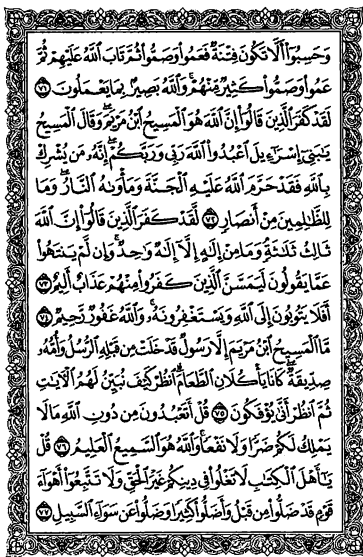 وَحَسِبُوٓا۟ أَلَّا تَكُونَ فِتْنَةٌ فَعَمُوا۟ وَصَمُّوا۟ ثُمَّ تَابَ ٱللَّهُ عَلَيْهِمْ ثُمَّ
عَمُوا۟ وَصَمُّوا۟ كَثِيرٌ مِّنْهُمْ ۚ وَٱللَّهُ بَصِيرٌۢ بِمَا يَعْمَلُونَ ٧١
لَقَدْ كَفَرَ ٱلَّذِينَ قَالُوٓا۟ إِنَّ ٱللَّهَ هُوَ ٱلْمَسِيحُ ٱبْنُ مَرْيَمَ ۖ وَقَالَ ٱلْمَسِيحُ
يَٰبَنِىٓ إِسْرَٰٓءِيلَ ٱعْبُدُوا۟ ٱللَّهَ رَبِّى وَرَبَّكُمْ ۖ إِنَّهُۥ مَن يُشْرِكْ
بِٱللَّهِ فَقَدْ حَرَّمَ ٱللَّهُ عَلَيْهِ ٱلْجَنَّةَ وَمَأْوَىٰهُ ٱلنَّارُ ۖ وَمَا
لِلظَّٰلِمِينَ مِنْ أَنصَارٍ ٧٢ لَّقَدْ كَفَرَ ٱلَّذِينَ قَالُوٓا۟ إِنَّ ٱللَّهَ
ثَالِثُ ثَلَٰثَةٍ ۘ وَمَا مِنْ إِلَٰهٍ إِلَّآ إِلَٰهٌ وَٰحِدٌ ۚ وَإِن لَّمْ يَنتَهُوا۟
عَمَّا يَقُولُونَ لَيَمَسَّنَّ ٱلَّذِينَ كَفَرُوا۟ مِنْهُمْ عَذَابٌ أَلِيمٌ ٧٣
أَفَلَا يَتُوبُونَ إِلَى ٱللَّهِ وَيَسْتَغْفِرُونَهُۥ ۚ وَٱللَّهُ غَفُورٌ رَّحِيمٌ ٧٤
مَّا ٱلْمَسِيحُ ٱبْنُ مَرْيَمَ إِلَّا رَسُولٌ قَدْ خَلَتْ مِن قَبْلِهِ ٱلرُّسُلُ وَأُمُّهُۥ
صِدِّيقَةٌ ۖ كَانَا يَأْكُلَانِ ٱلطَّعَامَ ۗ ٱنظُرْ كَيْفَ نُبَيِّنُ لَهُمُ ٱلْءَايَٰتِ
ثُمَّ ٱنظُرْ أَنَّىٰ يُؤْفَكُونَ ٧٥ قُلْ أَتَعْبُدُونَ مِن دُونِ ٱللَّهِ مَا لَا
يَمْلِكُ لَكُمْ ضَرًّا وَلَا نَفْعًا ۚ وَٱللَّهُ هُوَ ٱلسَّمِيعُ ٱلْعَلِيمُ ٧٦ قُلْ
يَٰٓأَهْلَ ٱلْكِتَٰبِ لَا تَغْلُوا۟ فِى دِينِكُمْ غَيْرَ ٱلْحَقِّ وَلَا تَتَّبِعُوٓا۟ أَهْوَآءَ
قَوْمٍ قَدْ ضَلُّوا۟ مِن قَبْلُ وَأَضَلُّوا۟ كَثِيرًا وَضَلُّوا۟ عَن سَوَآءِ ٱلسَّبِيلِ ٧٧